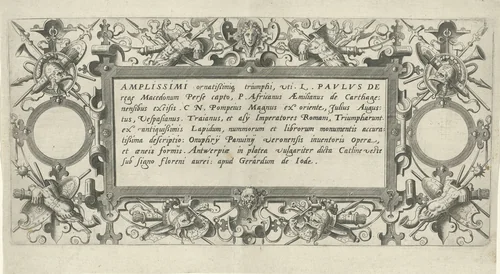 AMPLISSIMI ornatissimiq triumphi, uti L. PAVLVS DE
rege Macedonum Perse capto, P. Africanus Æmilianus de Carthage:
nensibus excisis. C N. Pompeius Magnus ex oriente, Julius Augus:
tus, Vespasianus. Traianus, et alij Imperatores Romani, Triumpharunt.
ex antiquissimis Lapidum, nummorum et librorum monumentis accura
tissima descriptio. Onuphrij Panuinij Veronensis inventoris Opera,
et æneis formis. Antwerpiæ in platea vulgariter dicta Catline veste
sub signo floreni aurei. apud Gerardum de Iode.